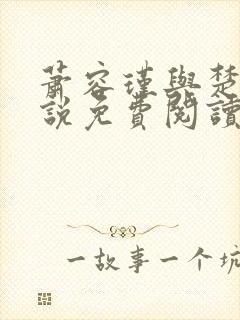 蕭容瑾與楚
說免費閱讀
一故事一个坑